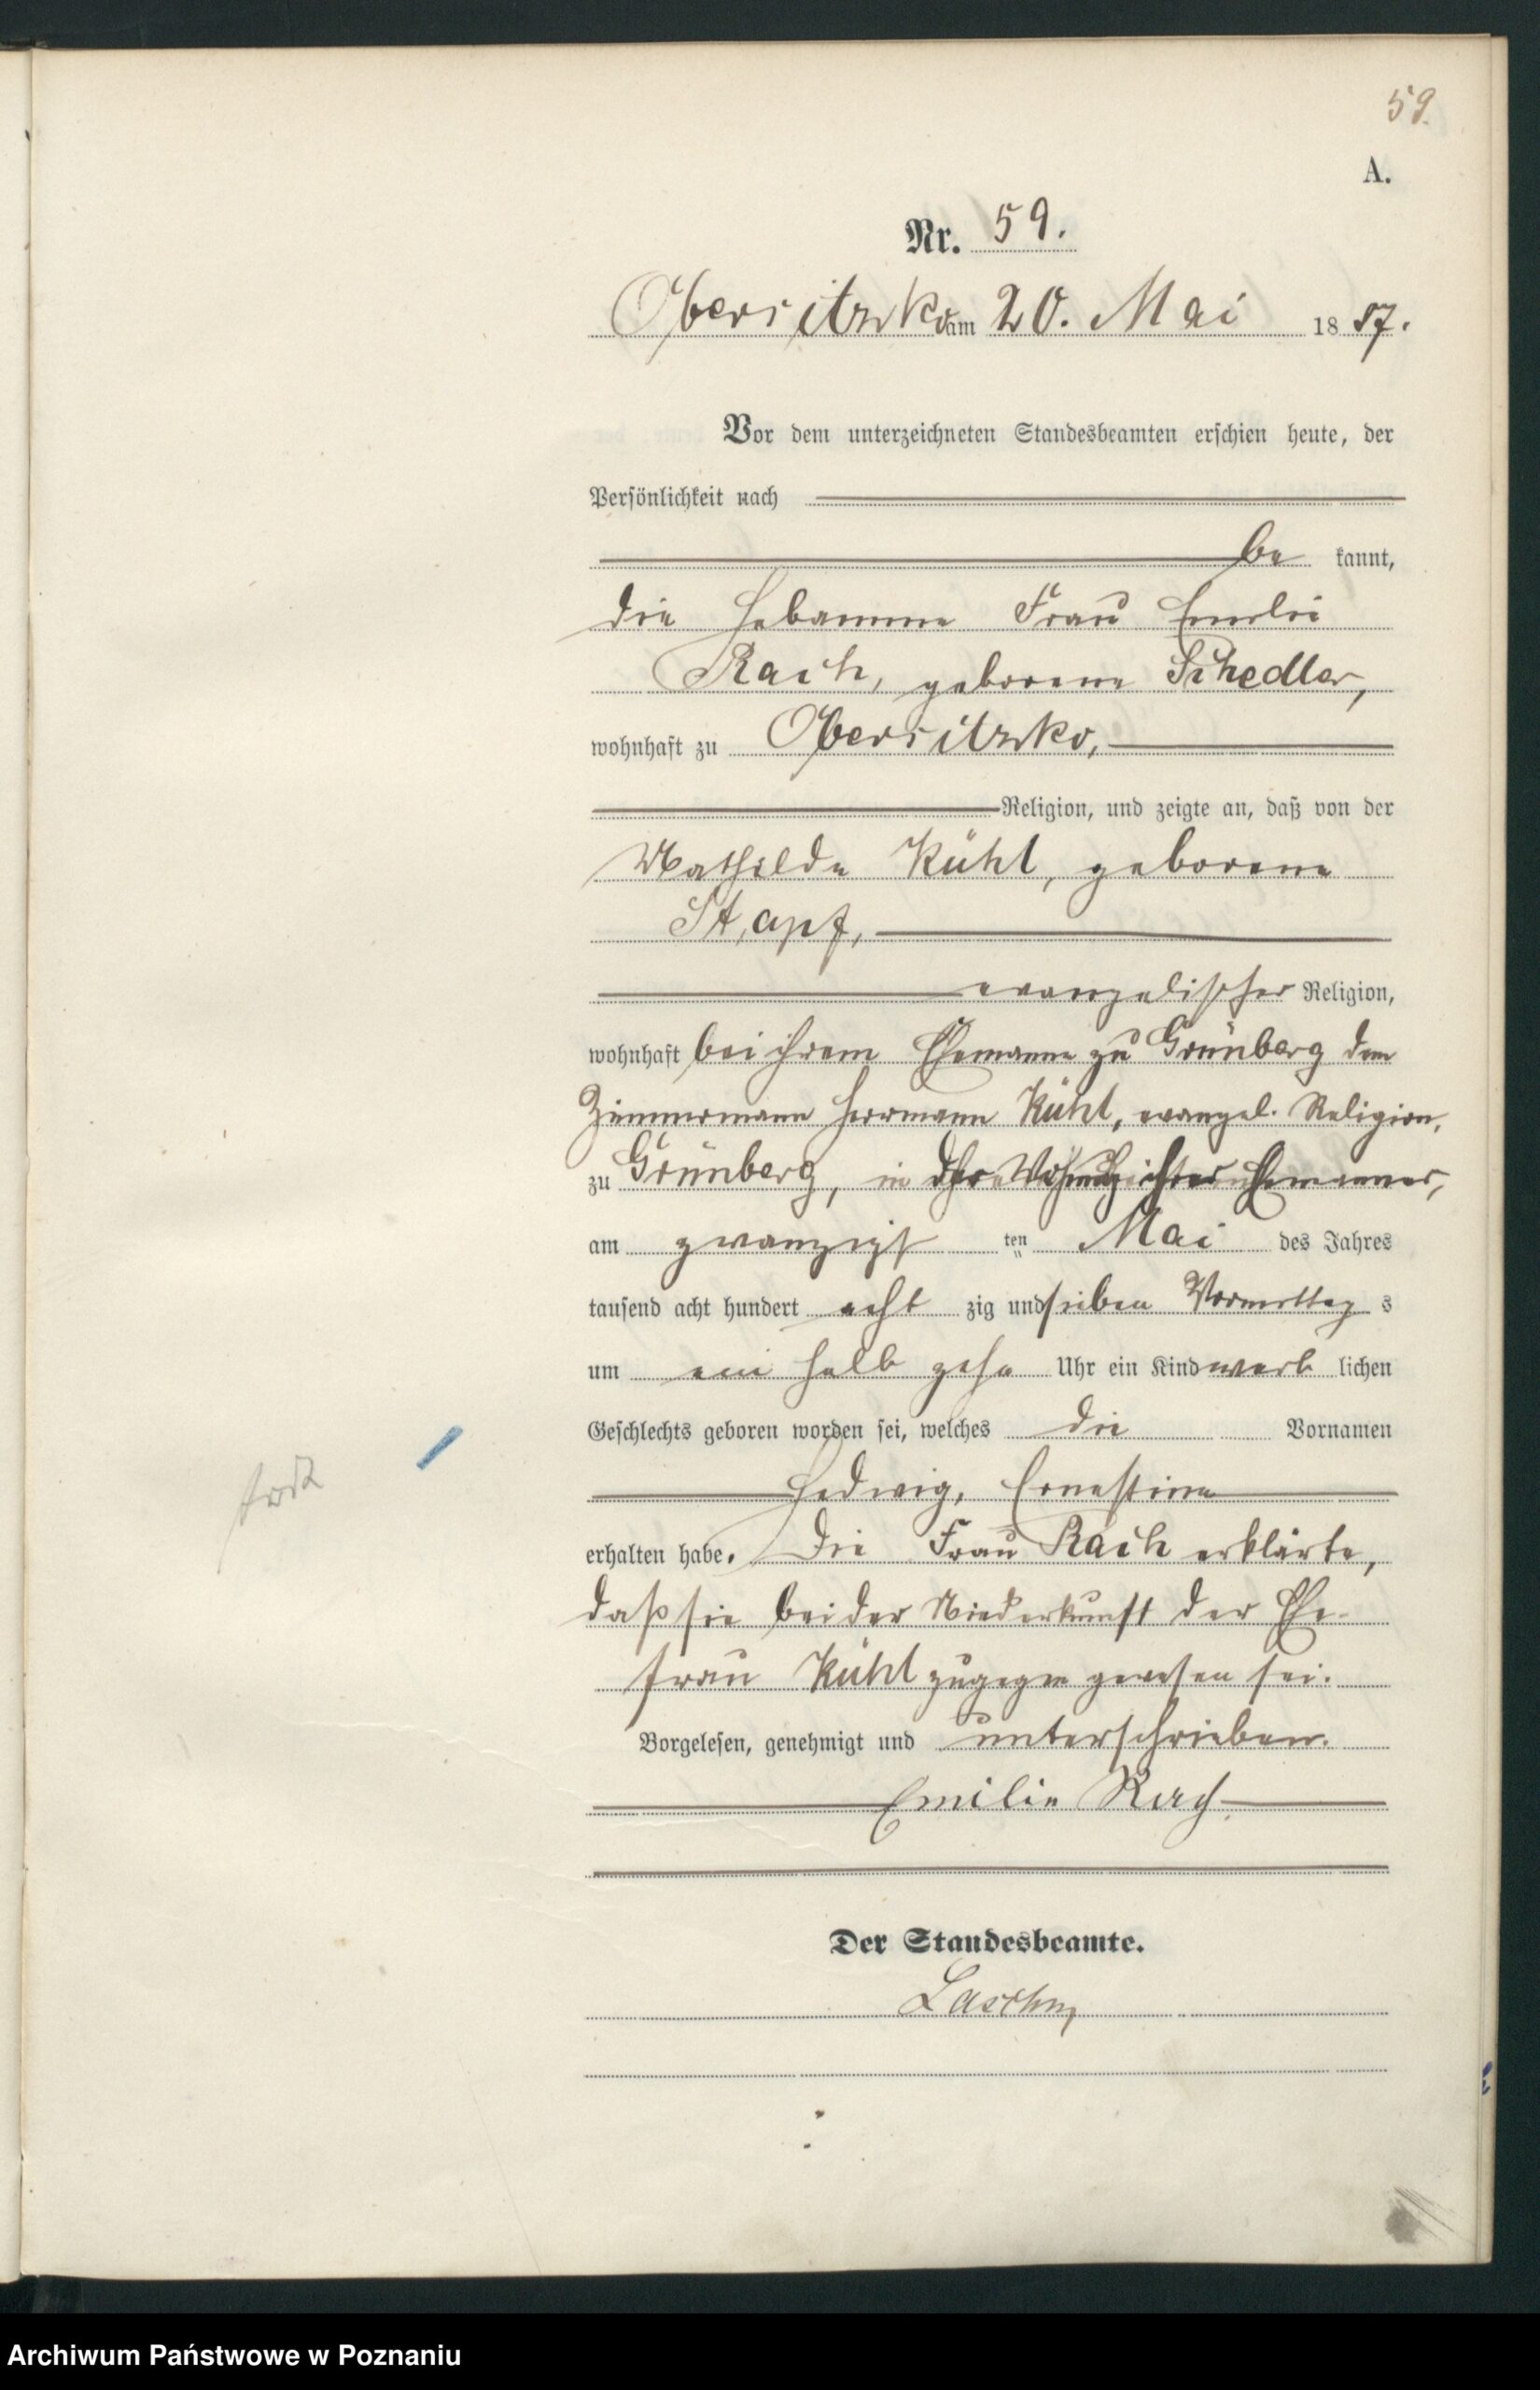 59.
A.
Nr. 59.
Obersitzko am 20. Mai 1887.
Vor dem unterzeichneten Standesbeamten erschien heute, der
Persönlichkeit nach
be kannt,
die Hebamme Frau Emilie
Rach, geborene Schedler,
wohnhaft zu Obersitzko,
Religion, und zeigte an, daß von der
Mathilde Kühl, geborene
Stapf,
evangelischer Religion,
wohnhaft bei ihrem Ehemanne zu Grünberg dem
Zimmermann Herrmann Kühl, evangel. Religion,
zu Grünberg, in der Wohnung ihres Ehemannes,
am zwanzigst ten Mai des Jahres
tausend acht hundert acht zig und sieben Vormittag s
um ein halb zehn Uhr ein Kind weib lichen
Geschlechts geboren worden sei, welches die Vornamen
Hedwig, Ernestine
erhalten habe. Die Frau Rach erklärte,
daß sie bei der Niederkunft der Ehe-
frau Kühl zugegen gewesen sei.
Vorgelesen, genehmigt und unterschrieben.
Emilie Rach
Der Standesbeamte.
Archiwum Państwowe w Poznaniu